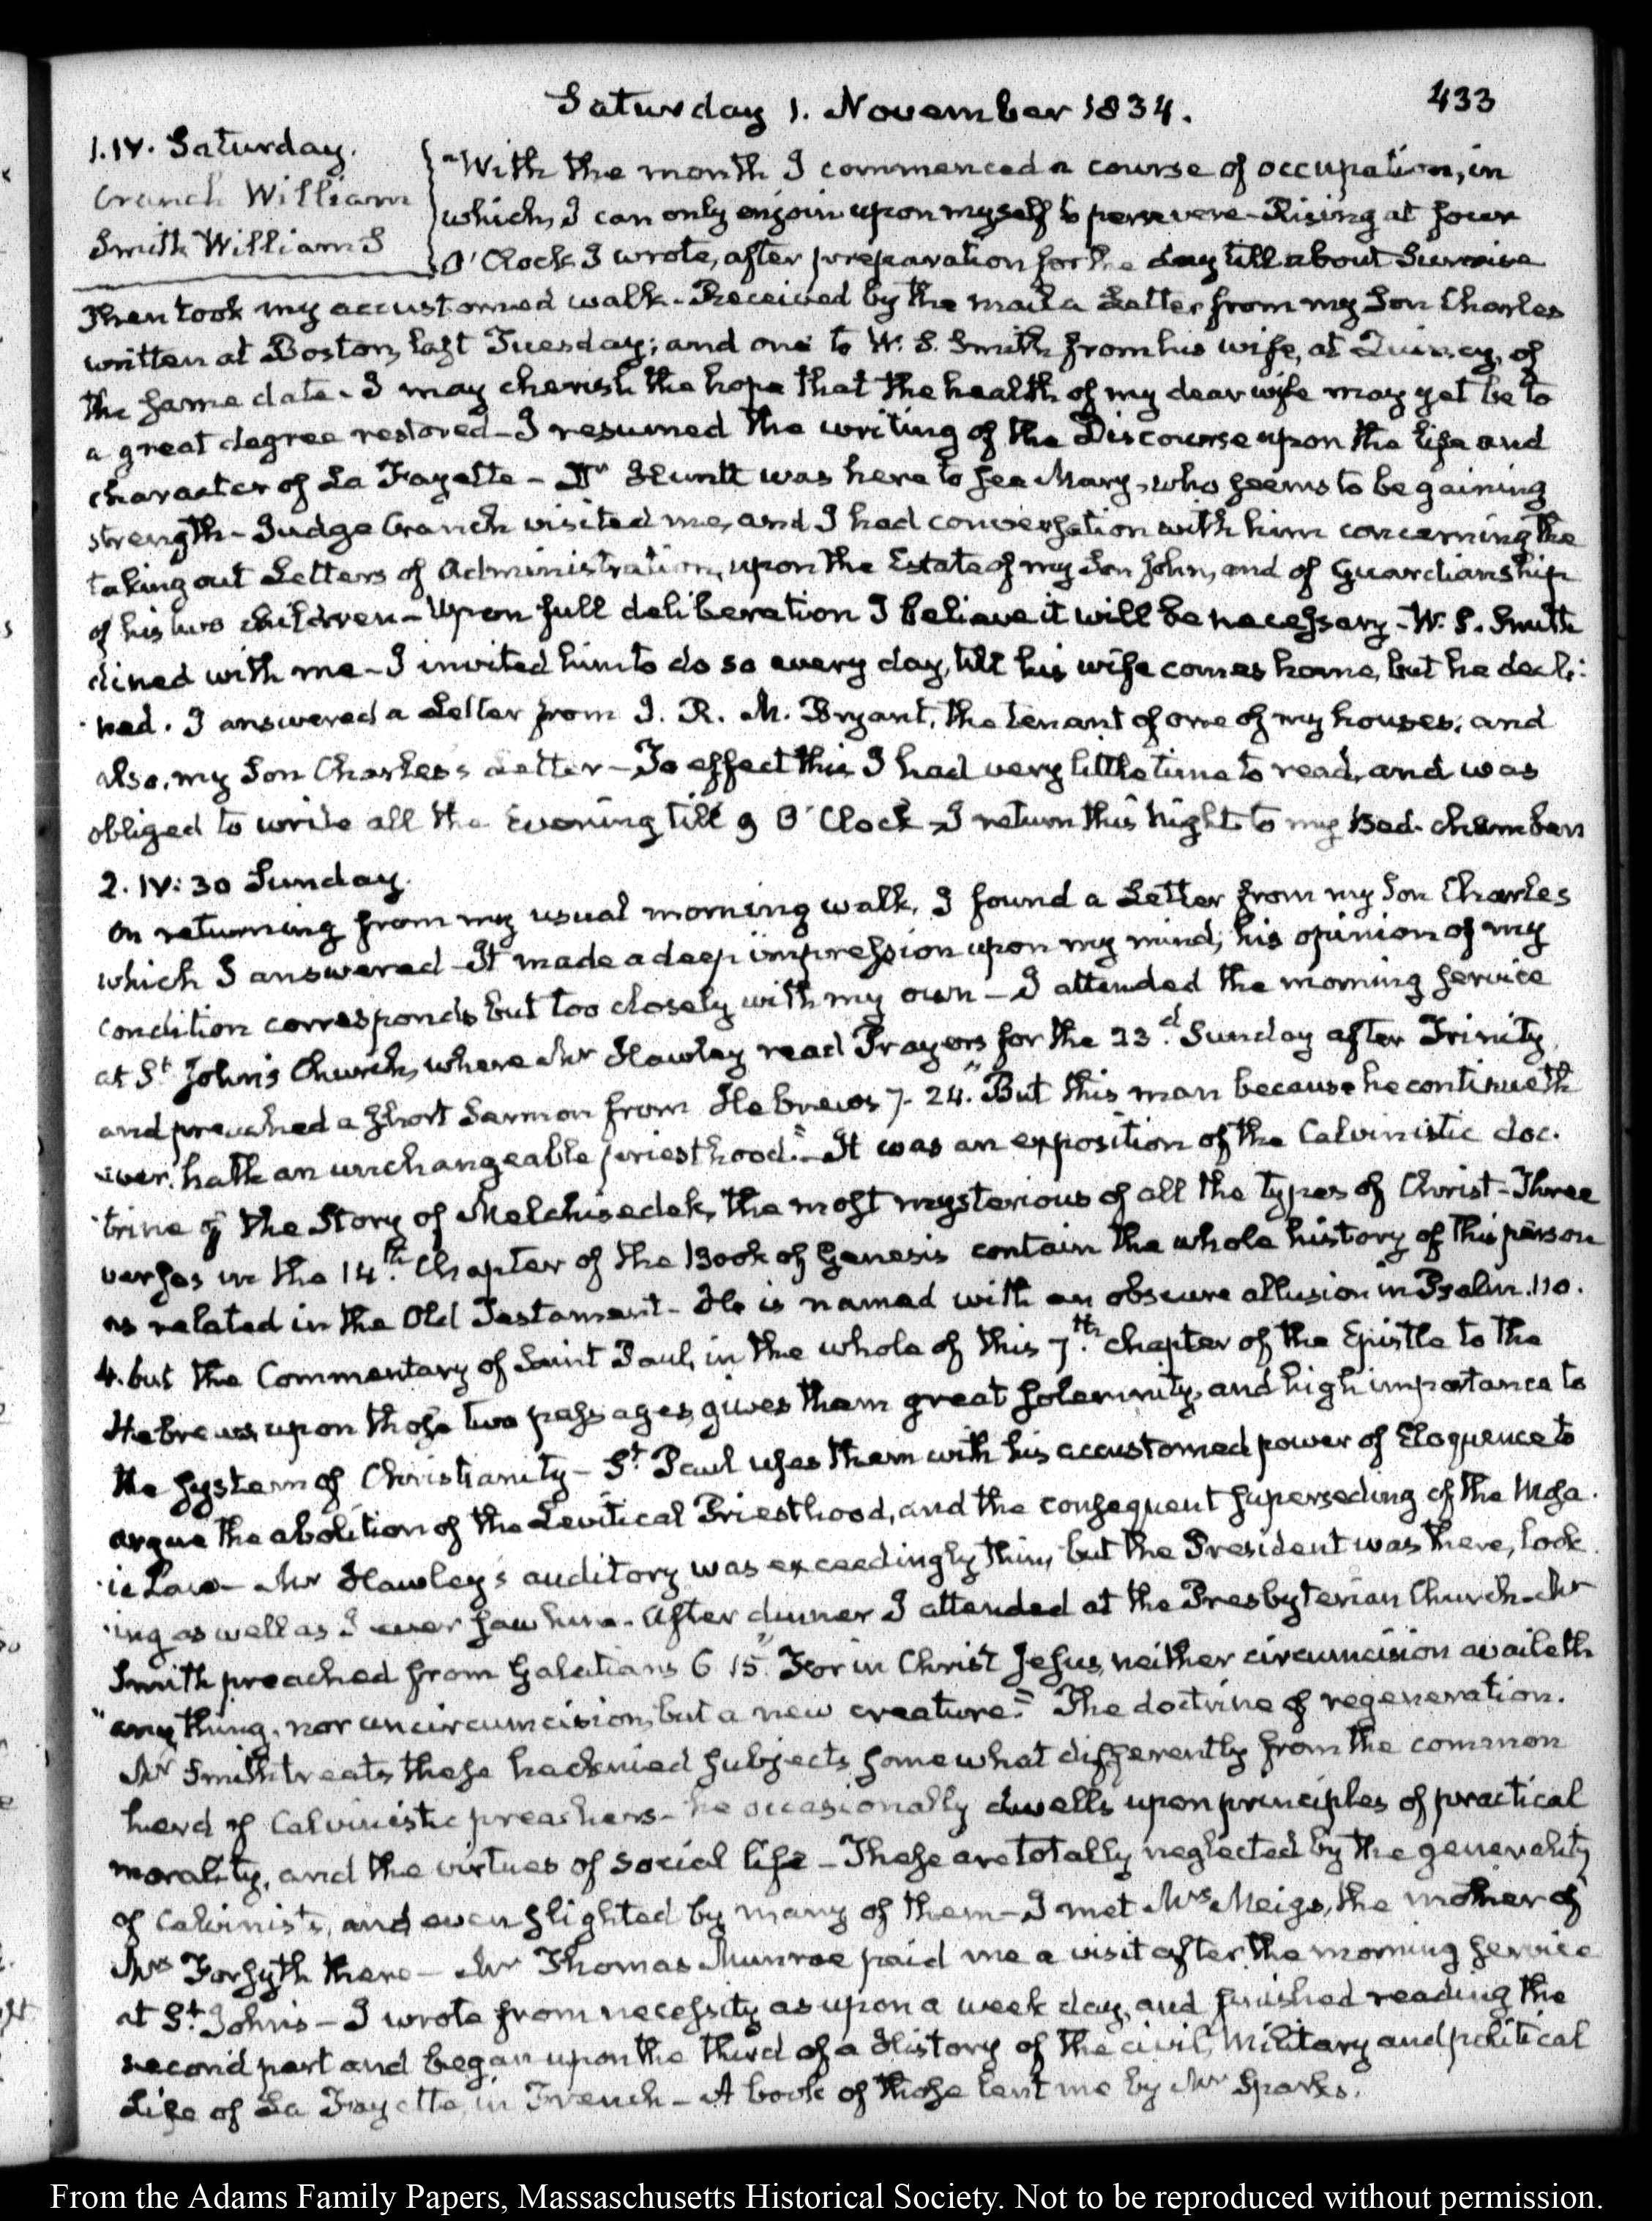 Saturday 1. November 1834.
433
1. IV. Saturday.
Cranch William
Smith William S
With the month I commenced a course of occupation, in
which, I can only enjoin upon myself to persevere - Rising at four
O'Clock I wrote, after preparation for the day till about Sunrise
Then took my accustomed walk - Received by the mail a Letter from my Son Charles
written at Boston, last Tuesday; and one to W. S. Smith from his wife, at Quincy, of
the same date - I may cherish the hope that the health of my dear wife may yet be to
a great degree restored - I resumed the writing of the Discourse upon the life and
character of La Fayette - Dr Huntt was here to see Mary, who seems to be gaining
strength - Judge Cranch visited me, and I had conversation with him concerning the
taking out Letters of Administration, upon the Estate of my Son John, and of Guardianship
of his two children - Upon full deliberation I believe it will be necessary - W. S. Smith
dined with me - I invited him to do so every day, till his wife comes home, but he decli-
-ned. I answered a Letter from J. R. M. Bryant, the tenant of one of my houses; and
also, my Son Charles's Letter - To effect this I had very little time to read, and was
obliged to write all the Evening till 9 O'Clock - I return this Night to my Bed-chamber
2. IV: 30 Sunday.
On returning from my usual morning walk, I found a Letter from my Son Charles
which I answered - It made a deep impression upon my mind; his opinion of my
condition corresponds but too closely with my own - I attended the morning service
at St. John's Church, where Mr Hawley read Prayers for the 23d. Sunday after Trinity,
and preached a short Sermon from Hebrews 7. 24. "But this man because he continueth
ever, hath an unchangeable priesthood." - It was an exposition of the Calvinistic doc-
-trine of the Story of Melchisedek, the most mysterious of all the types of Christ - Three
verses in the 14th. Chapter of the Book of Genesis contain the whole history of this person
as related in the Old Testament - He is named with an obscure allusion in Psalm. 110.
4. but the Commentary of Saint Paul, in the whole of this 7th. chapter of the Epistle to the
Hebrews, upon those two passages, gives them great solemnity, and high importance to
the system of Christianity - St. Paul uses them with his accustomed power of Eloquence to
argue the abolition of the Levitical Priesthood, and the consequent superseding of the Mosa-
-ic Law - Mr Hawley's auditory was exceedingly thin, but the President was there, look-
-ing as well as I ever saw him - After dinner I attended at the Presbyterian Church - Mr
Smith preached from Galatians 6 15. "For in Christ Jesus, neither circumcision availeth
"any thing, nor uncircumcision, but a new creature." The doctrine of regeneration.
Mr Smith treats these hacknied subjects somewhat differently from the common
herd of Calvinistic preachers - he occasionally dwells upon principles of practical
morality, and the virtues of social life - These are totally neglected by the generality
of Calvinists, and even slighted by many of them - I met Mrs Meigs, the mother of
Mrs Forsyth there - Mr Thomas Munroe paid me a visit after the morning service
at St. John's - I wrote from necessity as upon a week day, and finished reading the
second part and began upon the third of a History of the civil, Military and political
Life of La Fayette, in French - A book of those lent me by Mr Sparks.
From the Adams Family Papers, Massachusetts Historical Society. Not to be reproduced without permission.